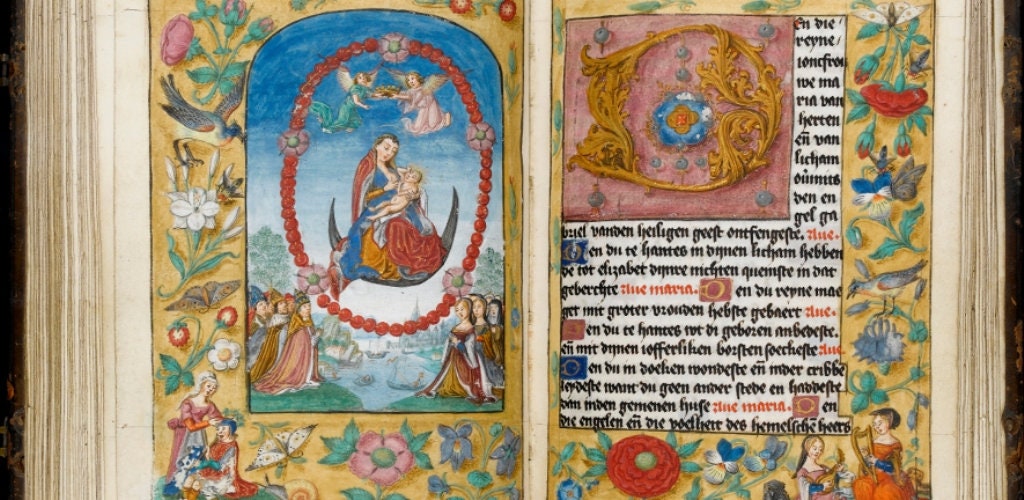 En die
reyne
ioncfrou
we ma
ria van
herten
en̄ van
licham
oūmits
den en
gel ga
briel vanden heiligen geest ontfengeste. Aue.
en du te hantes in dijnen licham hebben
de tot elizabet dijnre nichten quemste in dat
geberchte Aue maria. en du reyne mae
get mit groter vrouden hebste gebaert Aue.
en du te hantes tot di geboren anbedeste.
en̄ mit dijnen iofferliken borsten soechste Aue
en du in doeken wondeste en̄ inder cribbe
leydeste want du geen ander stede en haddeste
dan inden gemenen huse Aue maria. en
die engelen en̄ die voelheit des hemelschē heers